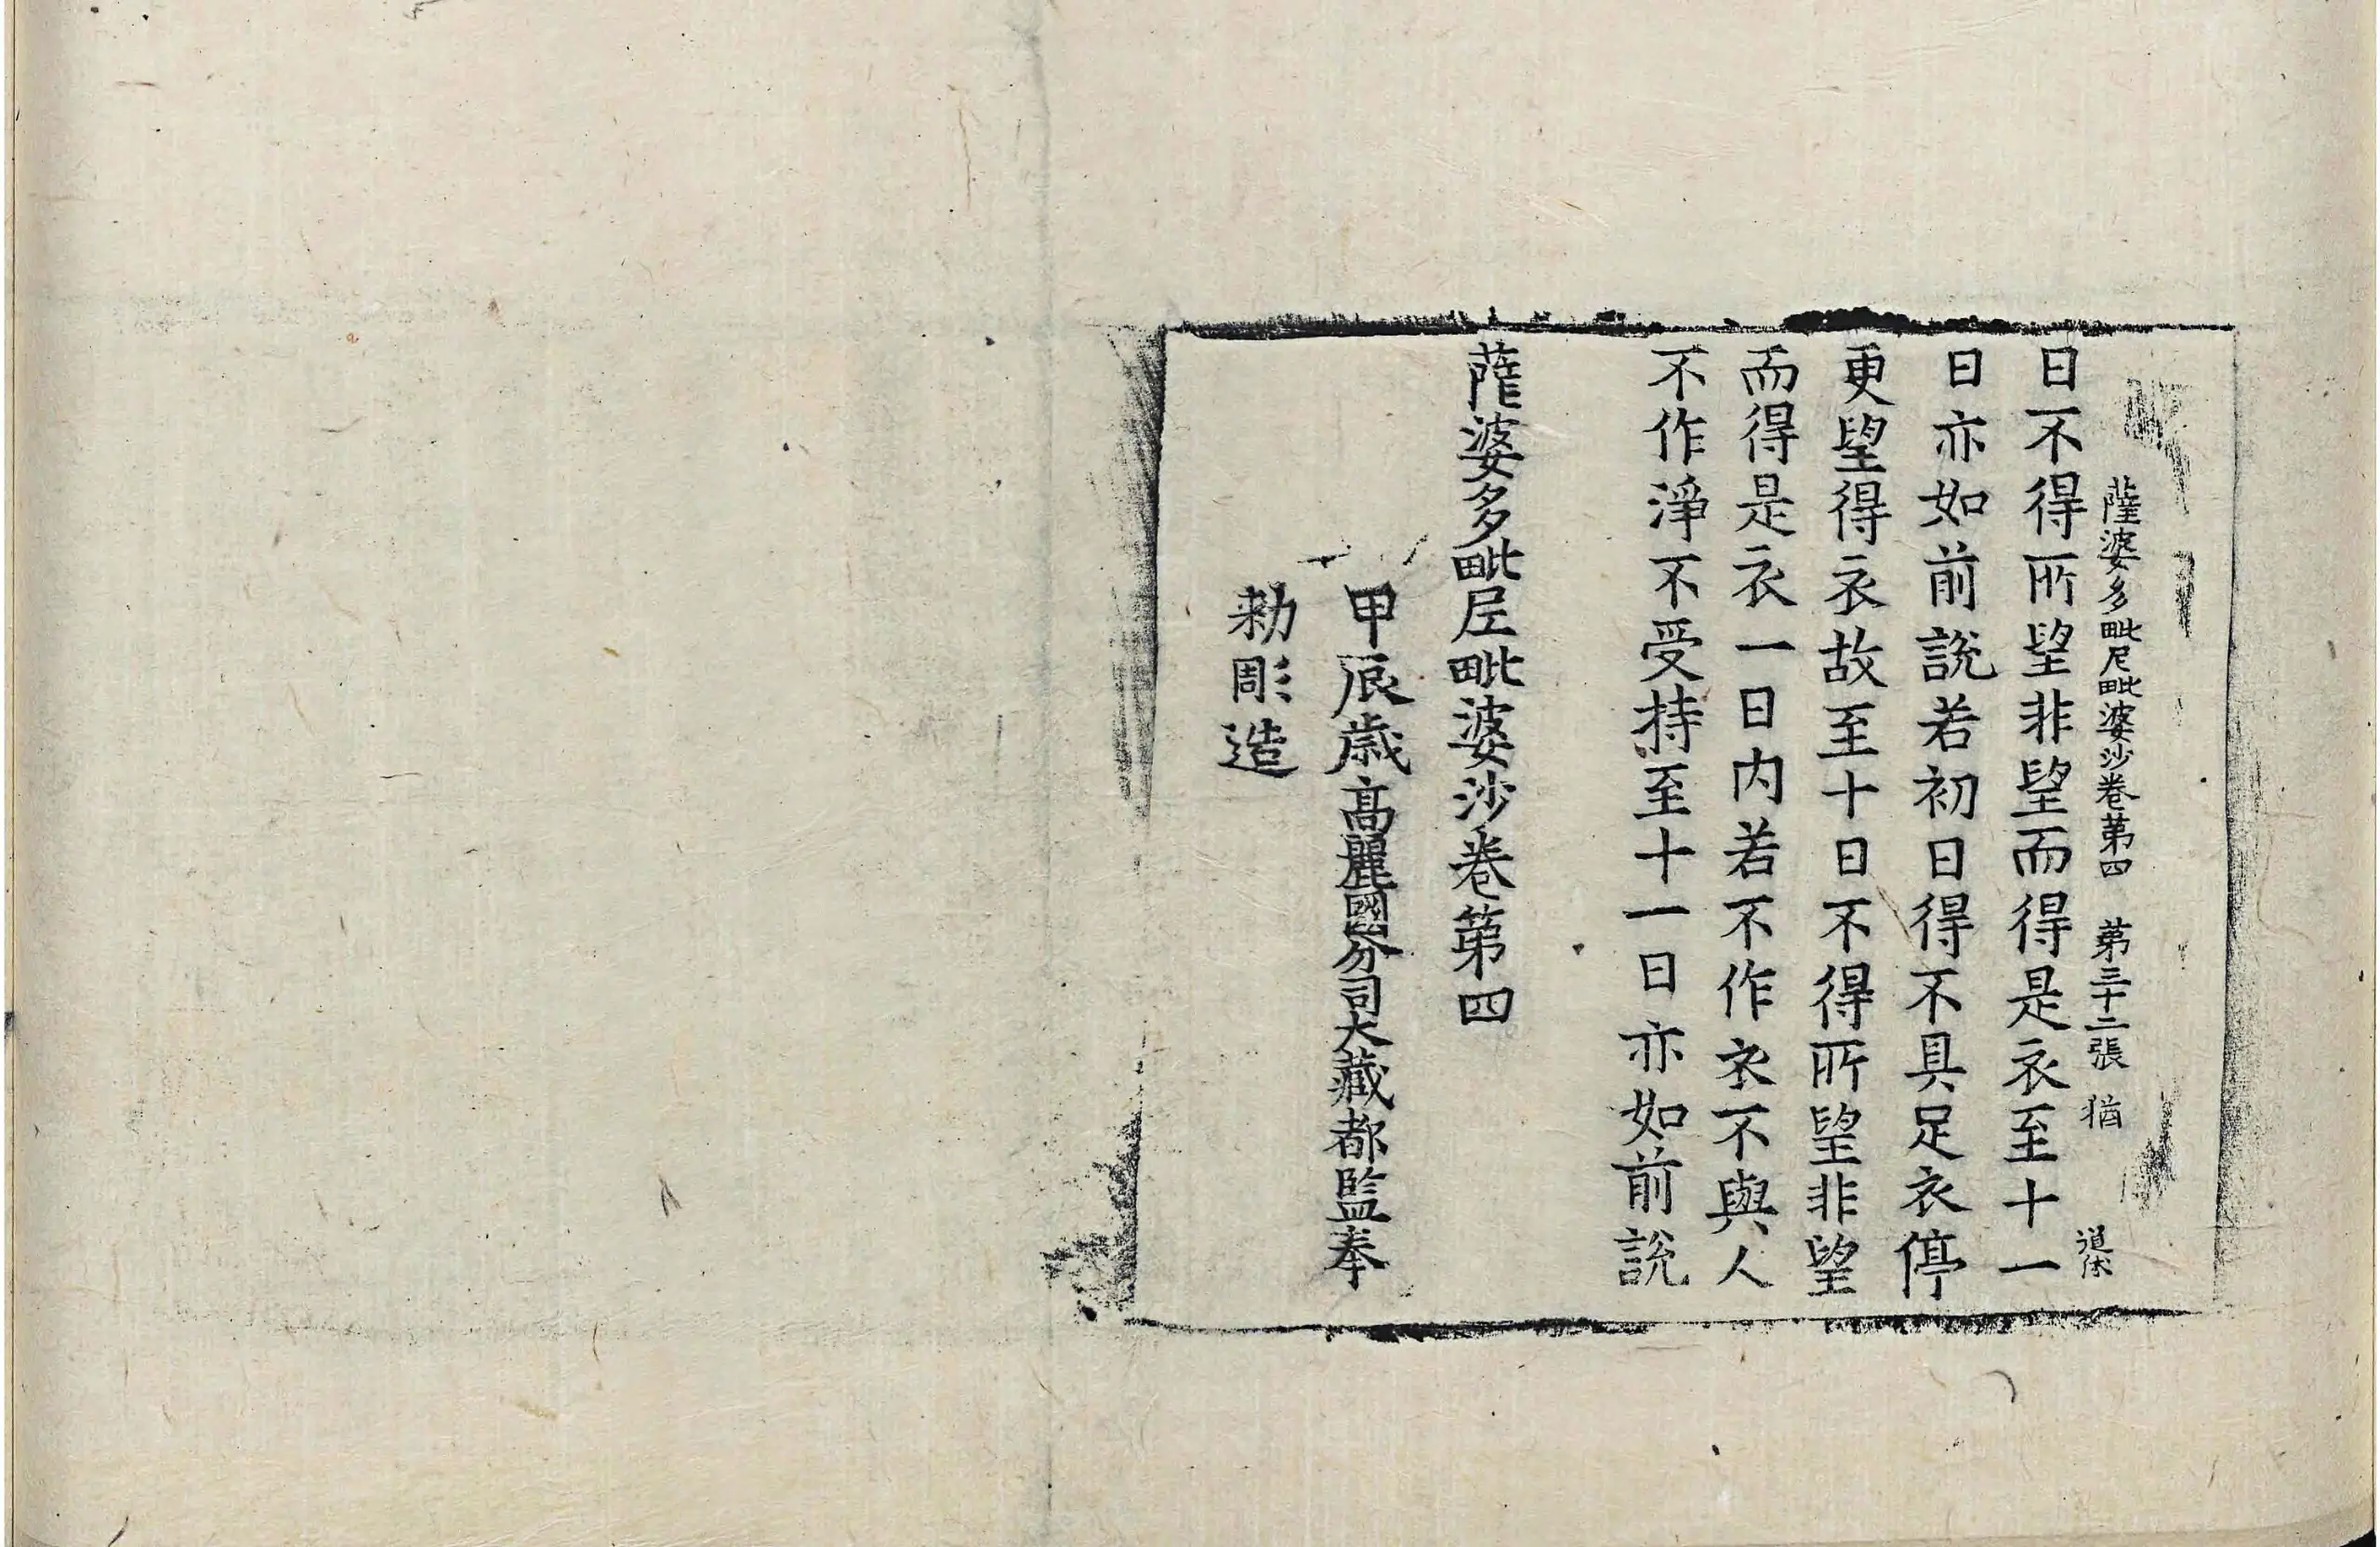 薩婆多毗尼毗婆沙卷第四　第三十二張　猶　道休
日不得所望非望而得是衣至十一
日亦如前說若初日得不具足衣停
更望得衣故至十日不得所望非望
而得是衣一日內若不作衣不與人
不作淨不受持至十一日亦如前說
薩婆多毗尼毗婆沙卷第四
甲辰歲高麗國分司大藏都監奉
勑彫造